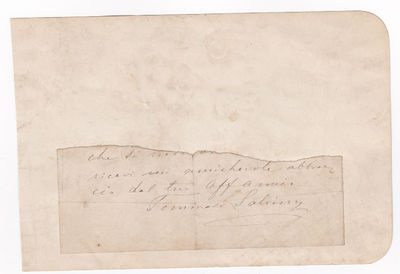 che si
ricevi un amichevole abbrac-
cio dal tuo Aff amico
Tommaso Salviny